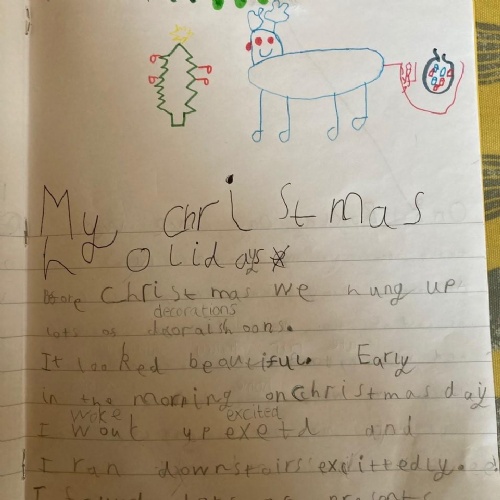 My christmas
holidays
Before Christmas we hung up
decorations
lots of decoralshoons.
It looked beautiful. Early
in the morning on Christmas day
woke excited
I wout up exetd and
I ran downstairs exittedly.